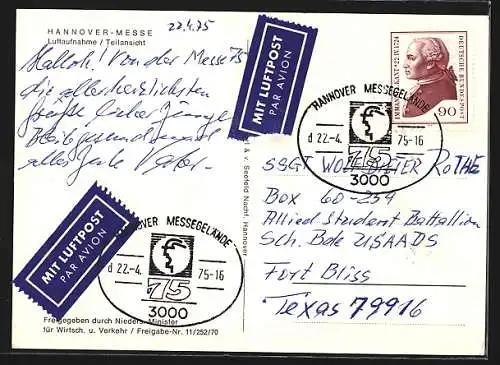 HANNOVER-MESSE
Luftaufnahme / Teilansicht
22.4.75
Halloh! Von der Messe 75
die allerherzlichsten
Grüße lieber Junge
Bleib gesund und
alles Gute Vater.
MIT LUFTPOST
PAR AVION
MIT LUFTPOST
PAR AVION
IMMANUEL KANT * 22.IV.1724
DEUTSCHE BUNDESPOST
90
HANNOVER MESSEGELÄNDE
d 22.-4. 75-16
75
3000
HANNOVER MESSEGELÄNDE
d 22.-4. 75-16
75
3000
& v. Seefeld Nachf. Hannover
SSGT WOLF DIETER ROTHE
Box 60-234
Allied Student Battallion
Sch. Bde USAADS
Fort Bliss
Texas 79916
Freigegeben durch Nieders. Minister
für Wirtsch. u. Verkehr / Freigabe-Nr. 11/252/70